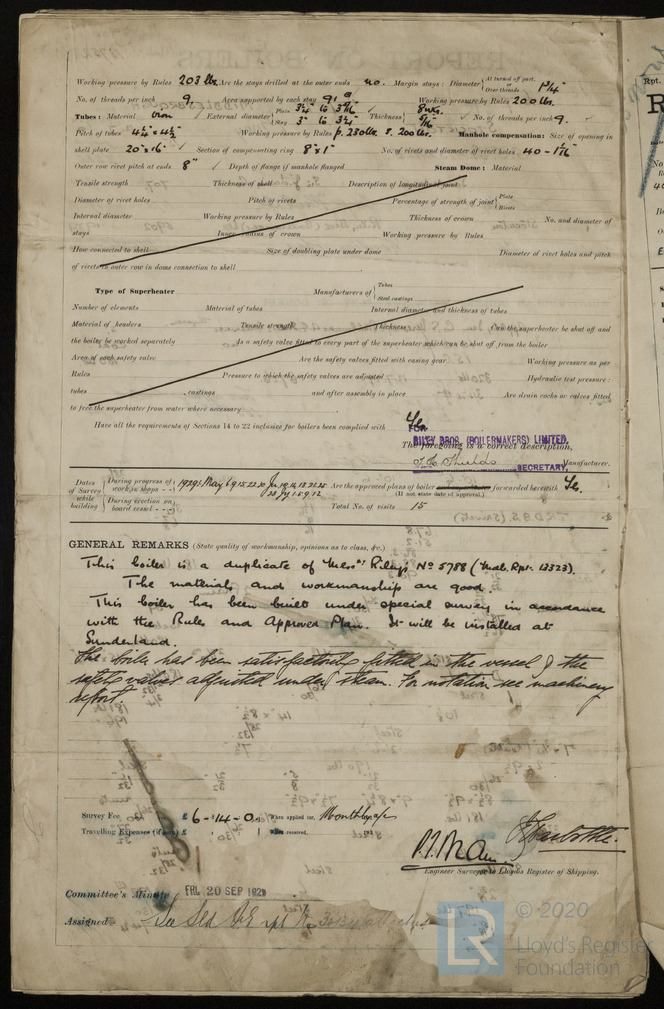 Working pressure by Rules 203 lbs Are the stays drilled at the outer ends no. Margin stays: Diameter At turned off part, or Over threads 1 3/4"
No. of threads per inch 9. Area supported by each stay Working pressure by Rules 200 lbs.
Tubes: Material Iron External diameter Plain 3 1/4" Stay 3" to 3 1/4" Thickness 8 WG. 5/16 No. of threads per inch 9.
Pitch of tubes 4 1/4 x 4 1/2 Working pressure by Rules p. 230 lbs s. 200 lbs. Manhole compensation: Size of opening in
shell plate 20" x 16" Section of compensating ring 8" x 1" No. of rivets and diameter of rivet holes 40 - 1 1/16"
Outer row rivet pitch at ends 8" Depth of flange if manhole flanged Steam Dome: Material
Tensile strength Thickness of shell Description of longitudinal joint
Diameter of rivet holes Pitch of rivets Percentage of strength of joint Plate Rivets
Internal diameter Working pressure by Rules Thickness of crown No. and diameter of
stays Inner radius of crown Working pressure by Rules
How connected to shell Size of doubling plate under dome Diameter of rivet holes and pitch
of rivets in outer row in dome connection to shell
Type of Superheater Manufacturers of Tubes Steel castings
Number of elements Material of tubes Internal diameter and thickness of tubes
Material of headers Tensile strength Thickness Can the superheater be shut off and
the boiler be worked separately Is a safety valve fitted to every part of the superheater which can be shut off from the boiler
Area of each safety valve Are the safety valves fitted with easing gear Working pressure as per
Rules Pressure to which the safety valves are adjusted Hydraulic test pressure:
tubes castings and after assembly in place Are drain cocks or valves fitted
to free the superheater from water where necessary
Have all the requirements of Sections 14 to 22 inclusive for boilers been complied with Yes
FOR
RILEY BROS. (BOILERMAKERS) LIMITED,
The foregoing is a correct description,
SECRETARY, Manufacturer.
Dates of Survey while building During progress of work in shops - - 1929: May 6 9 15 22 30 Are the approved plans of boiler forwarded herewith Yes.
During erection on board vessel - - - (If not state date of approval.)
Total No. of visits 15
GENERAL REMARKS (State quality of workmanship, opinions as to class, &c.)
This boiler is a duplicate of Messrs Rileys No 5788 (Mab. Rpt. 13323).
The materials and workmanship are good.
This boiler has been built under special survey in accordance
with the Rules and Approved Plan. It will be installed at
Sunderland.
The boiler has been satisfactorily fitted in the vessel & the
safety valves adjusted under steam. For notation see machinery
report.
Survey Fee £ 6 - 14 - 0 When applied for, Monthly a/c
Travelling Expenses (if any) £ When received,
Engineer Surveyor to Lloyd's Register of Shipping.
Committee's Minute FRI. 20 SEP 1929
Assigned See Sld
© 2020
LR
Lloyd's Register
Foundation
Rpt.